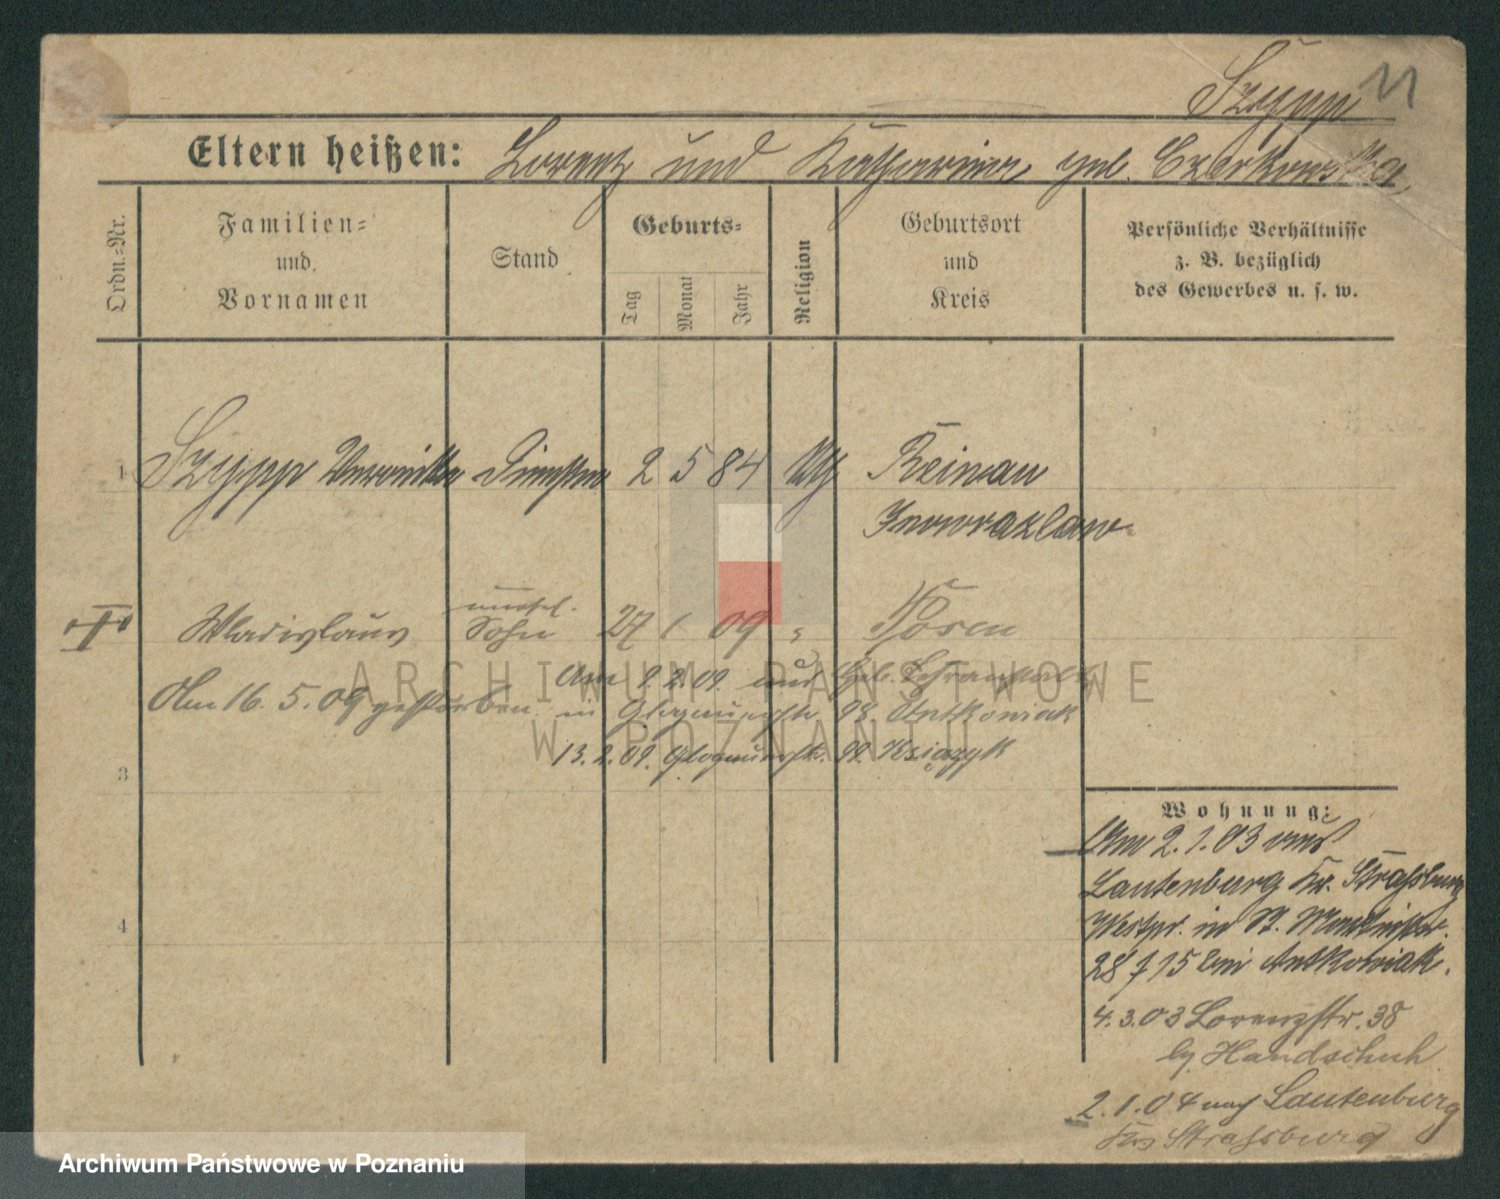 Szypp
Eltern heißen: Lorentz und Katharina, geb. Czerkowska,
Ordn.-Nr.
Familien-
und
Vornamen
Stand
Geburts-
Tag
Monat
Jahr
Religion
Geburtsort
und
Kreis
Persönliche Verhältnisse
z. B. bezüglich
des Gewerbes u. s. w.
1 Szypp Veronika 2 5 84 kth Reinau
Inowrazlaw
Wladislaus Sohn 27 1 09 Posen
Am 16. 5. 09 gestorben
Am 9. 2. 09
in 98. Antkowiak
13. 2. 09. 99. Ksiązyk
3
4
Wohnung:
Am 2. 1. 03 von
Lautenburg Kr. Straßburg
Westpr. in St. Martinstr.
28 bei Antkowiak.
4. 3. 03 Lorenzstr. 38
by Handschuh
2. 1. 04 nach Lautenburg
Krs Straßburg
ARCHIWUM PAŃSTWOWE
W POZNANIU
Archiwum Państwowe w Poznaniu